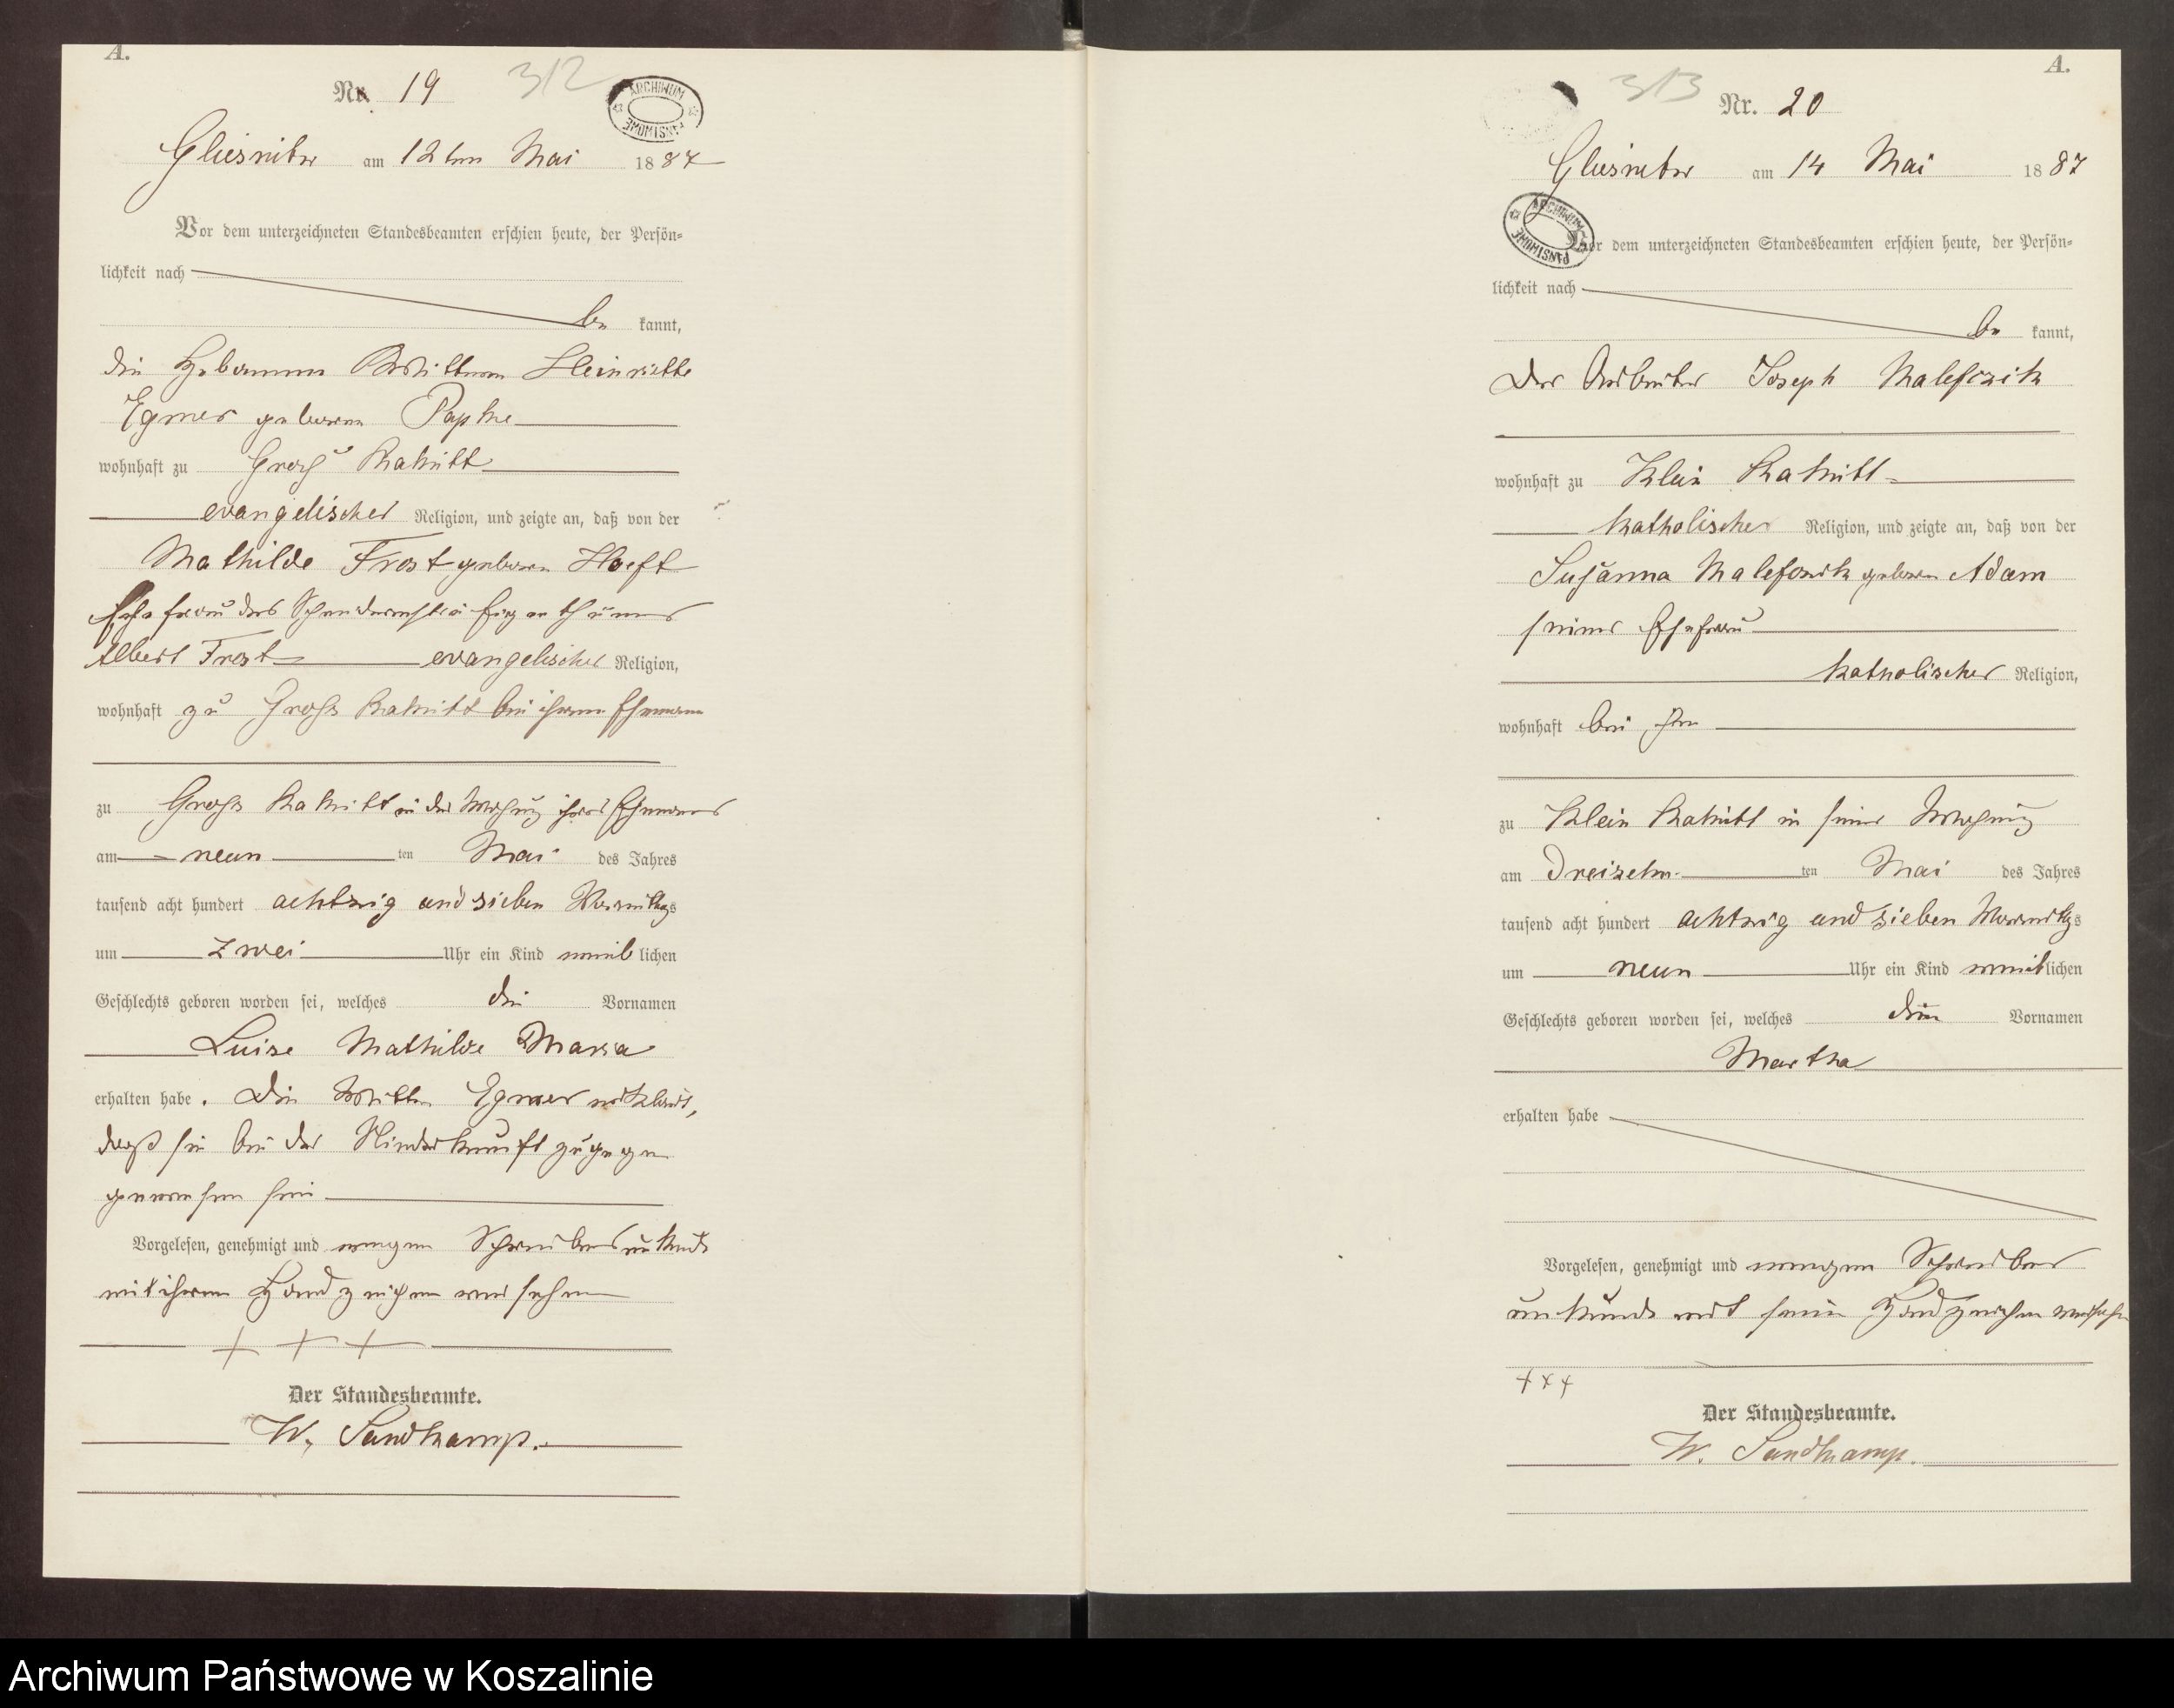 A.
Nr. 19
312
ARCHIWUM PAŃSTWOWE
Gliesnitz am 12ten Mai 1887
Vor dem unterzeichneten Standesbeamten erschien heute, der Persön-
lichkeit nach
be kannt,
die Hebamme Wittwe Heinriette
Egmer geborene Papke
wohnhaft zu Groß Rakitt
evangelischer Religion, und zeigte an, daß von der
Mathilde Frost geborene Hoeft
Ehefrau des Eigenthümers
Albert Frost evangelischer Religion,
wohnhaft zu Groß Rakitt bei ihrem Ehemann
zu Groß Rakitt in der Wohnung ihres Ehemannes
am neun ten Mai des Jahres
tausend acht hundert achtzig und sieben Vormittags
um zwei Uhr ein Kind weiblichen
Geschlechts geboren worden sei, welches die Vornamen
Luise Mathilde Maria
erhalten habe. Die Wittwe Egmer erklärt,
daß sie bei der Niederkunft zugegen
gewesen sei
Vorgelesen, genehmigt und wegen Schreibensunkunde
mit ihrem Handzeichen versehen
+ + +
Der Standesbeamte.
W. Sandkamp.
A.
313
Nr. 20
Gliesnitz am 14 Mai 1887
ARCHIWUM PAŃSTWOWE
Vor dem unterzeichneten Standesbeamten erschien heute, der Persön-
lichkeit nach
be kannt,
Der Arbeiter Joseph Malefczik
wohnhaft zu Klein Rakitt
katholischer Religion, und zeigte an, daß von der
Susanna Malefczik geborene Adam
seiner Ehefrau
katholischer Religion,
wohnhaft bei ihm
zu Klein Rakitt in seiner Wohnung
am Dreizehn ten Mai des Jahres
tausend acht hundert achtzig und sieben Vormittags
um neun Uhr ein Kind weiblichen
Geschlechts geboren worden sei, welches den Vornamen
Martha
erhalten habe
Vorgelesen, genehmigt und wegen Schreibens
unkunde mit seinem Handzeichen versehen
+++
Der Standesbeamte.
W. Sandkamp.
Archiwum Państwowe w Koszalinie